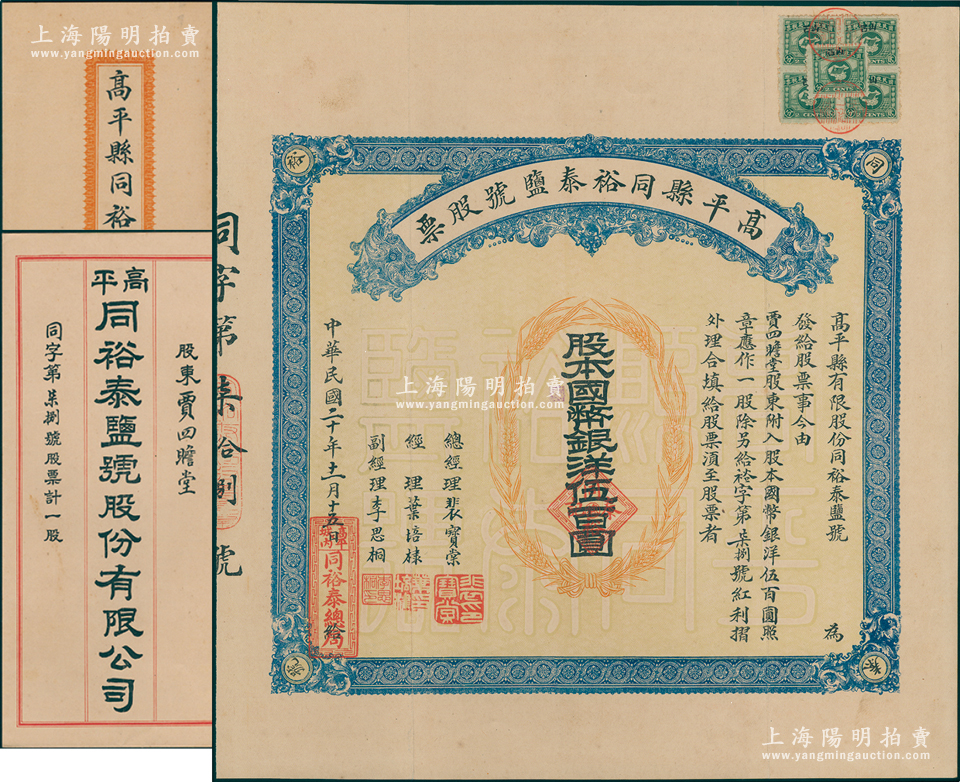 上海陽明拍賣
www.yangmingauction.com
高平縣同裕
高平
同裕泰鹽號股份有限公司
股東賈四瞻堂
同字第柒捌號股票計一股
同字第柒拾捌號
高平縣同裕泰鹽號股票
同
裕
泰
高平縣有限股份同裕泰鹽號為
發給股票事今由
賈四瞻堂股東附入股本國幣銀洋伍百圓照
章應作一股除另給裕字第柒捌號紅利摺
外理合填給股票須至股票者
股本國幣銀洋伍百圓
總經理裴寶棠
經理葉培棣
副經理李思桐
中華民國二十年十一月十五日給
同裕泰總局
上海陽明拍賣
www.yangmingauction.com
上海陽明拍賣
www.yangmingauction.com